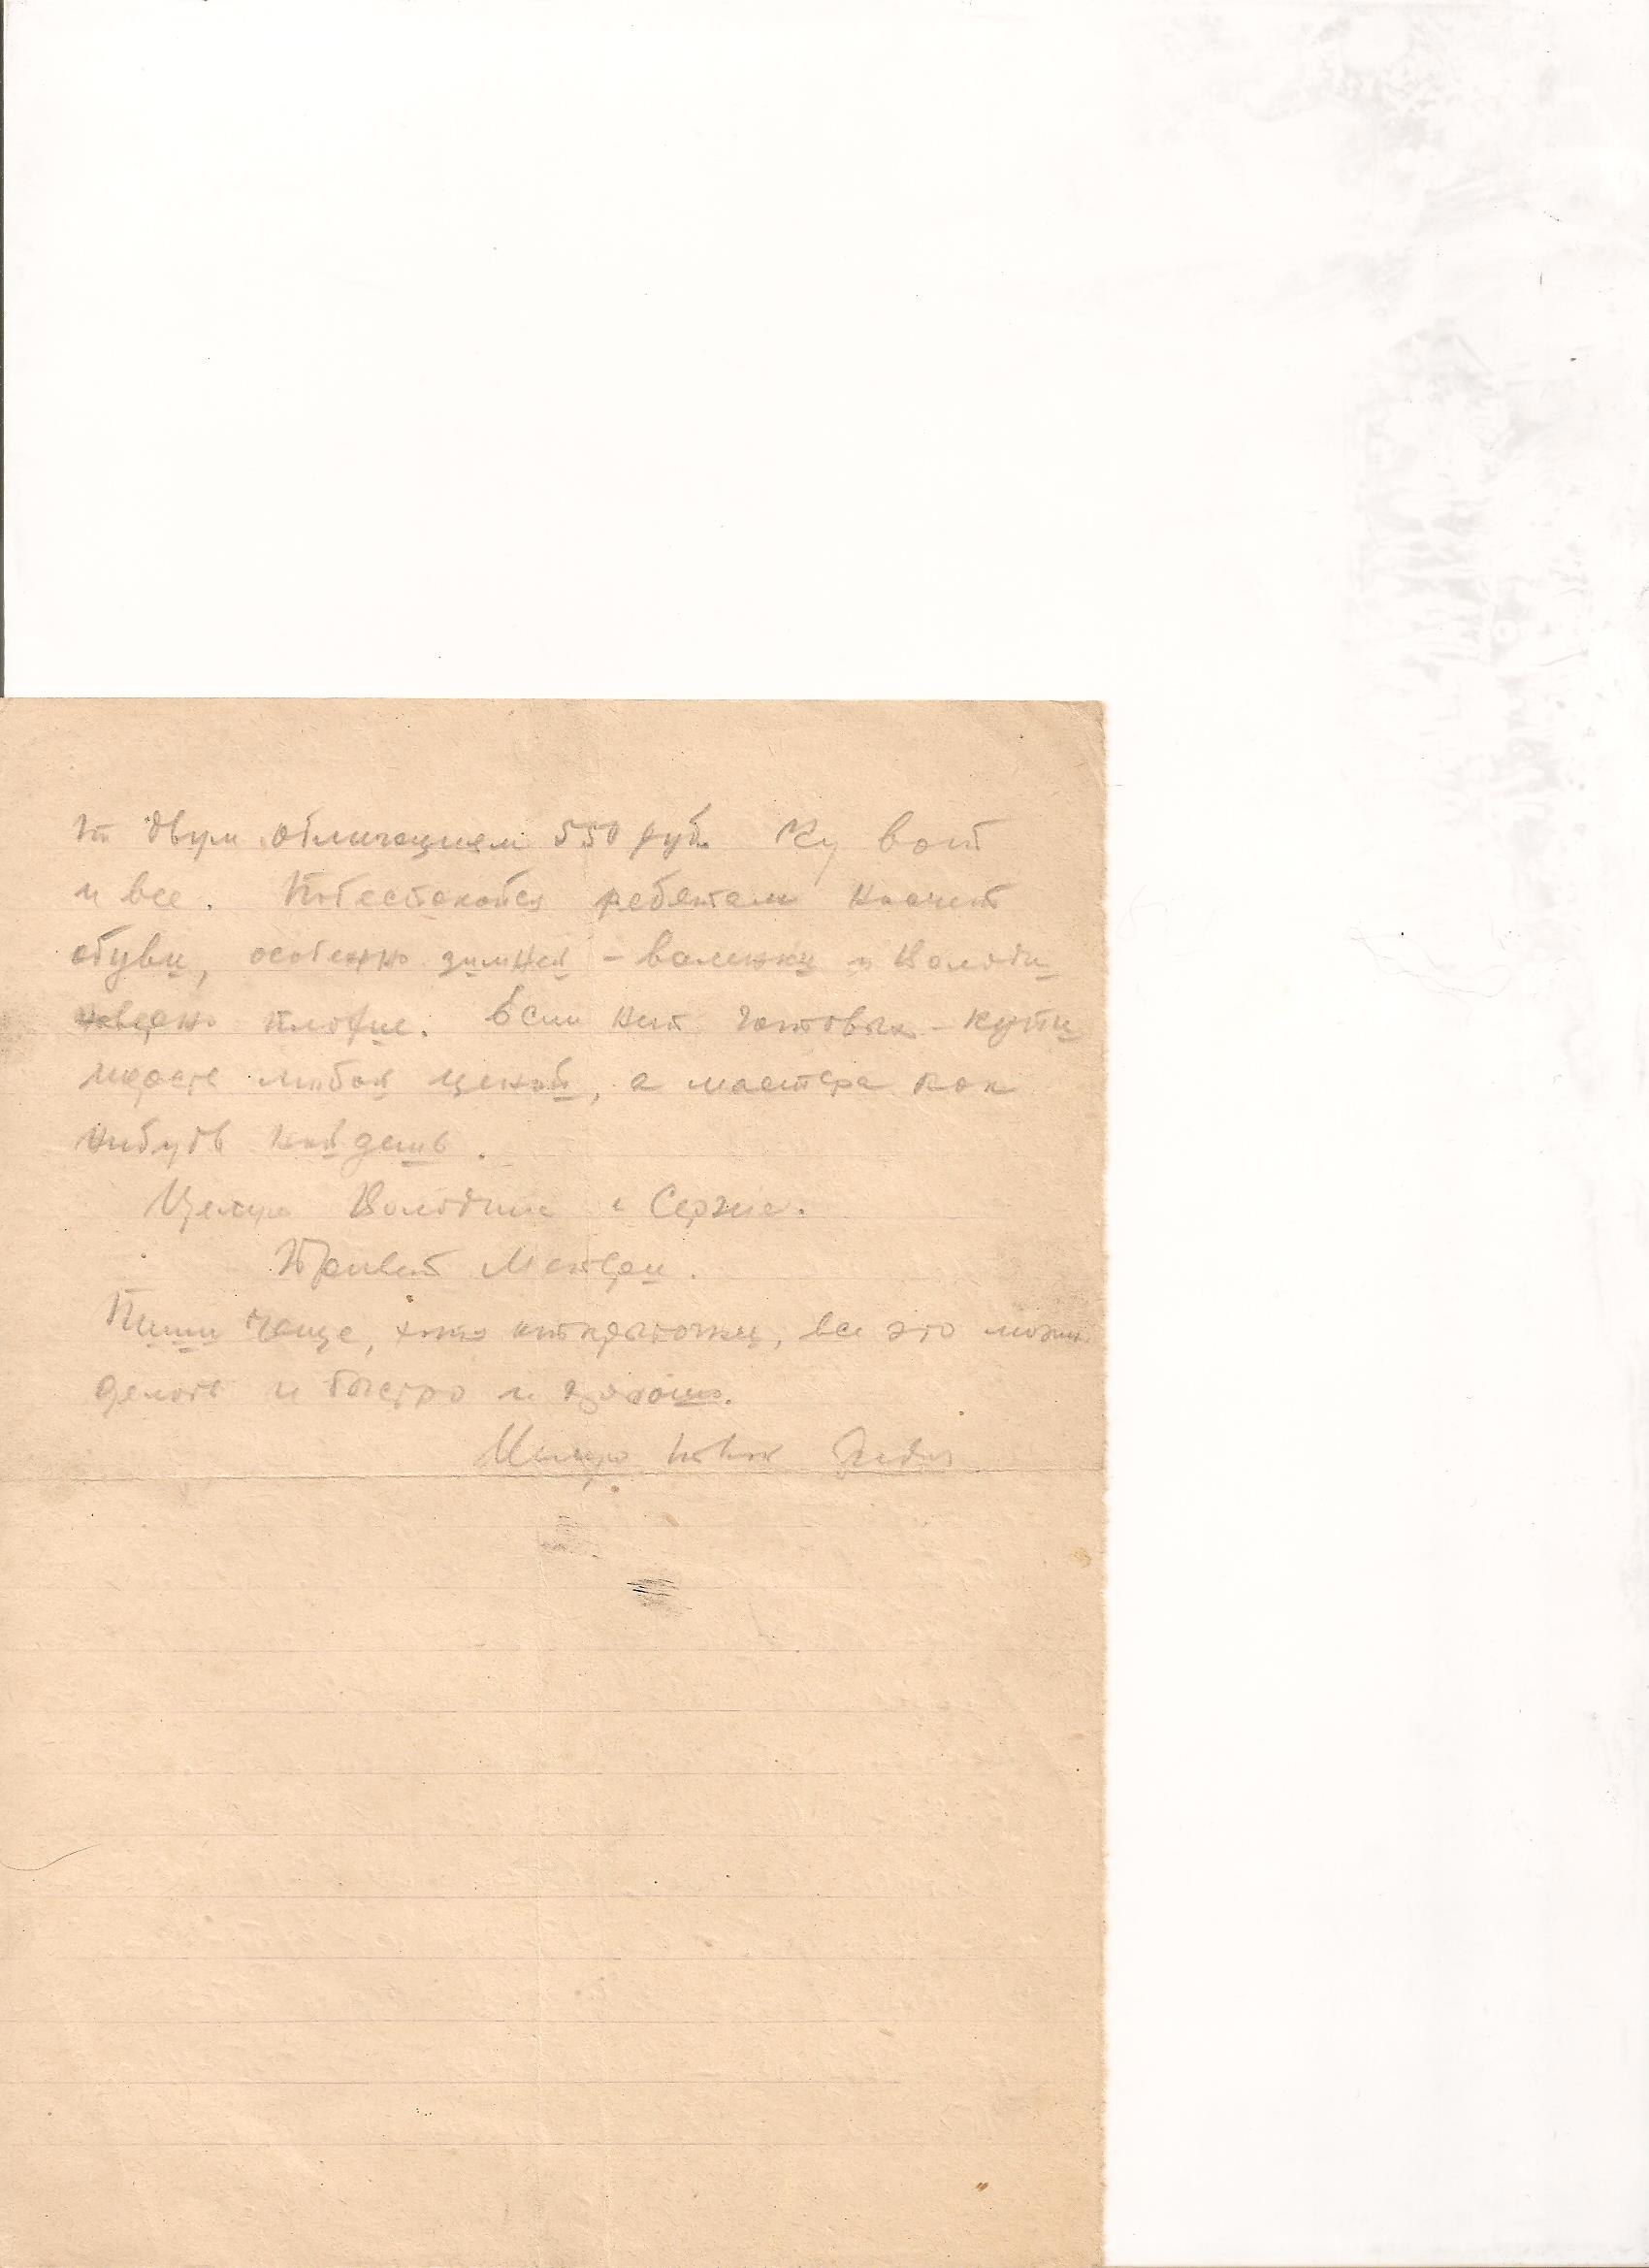 по двум облигациям 550 руб. Ну вот
и все. Побеспокойся ребятам насчет
обуви, особенно зимней – валенки у Володи
наверно плохие. Если нет готовых – купи
шерсть любой ценой, а мастера как
нибудь найдешь.
Целую Володичка и Сержа.
Привет Матери.
Пиши чаще, хотя открыточки, все это можно
делать и быстро и хорошо.
Целую